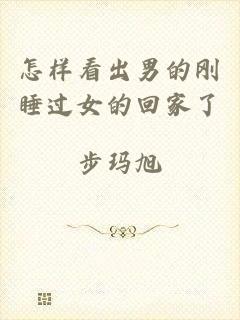 怎样看出男的刚
睡过女的回家了
步玛旭